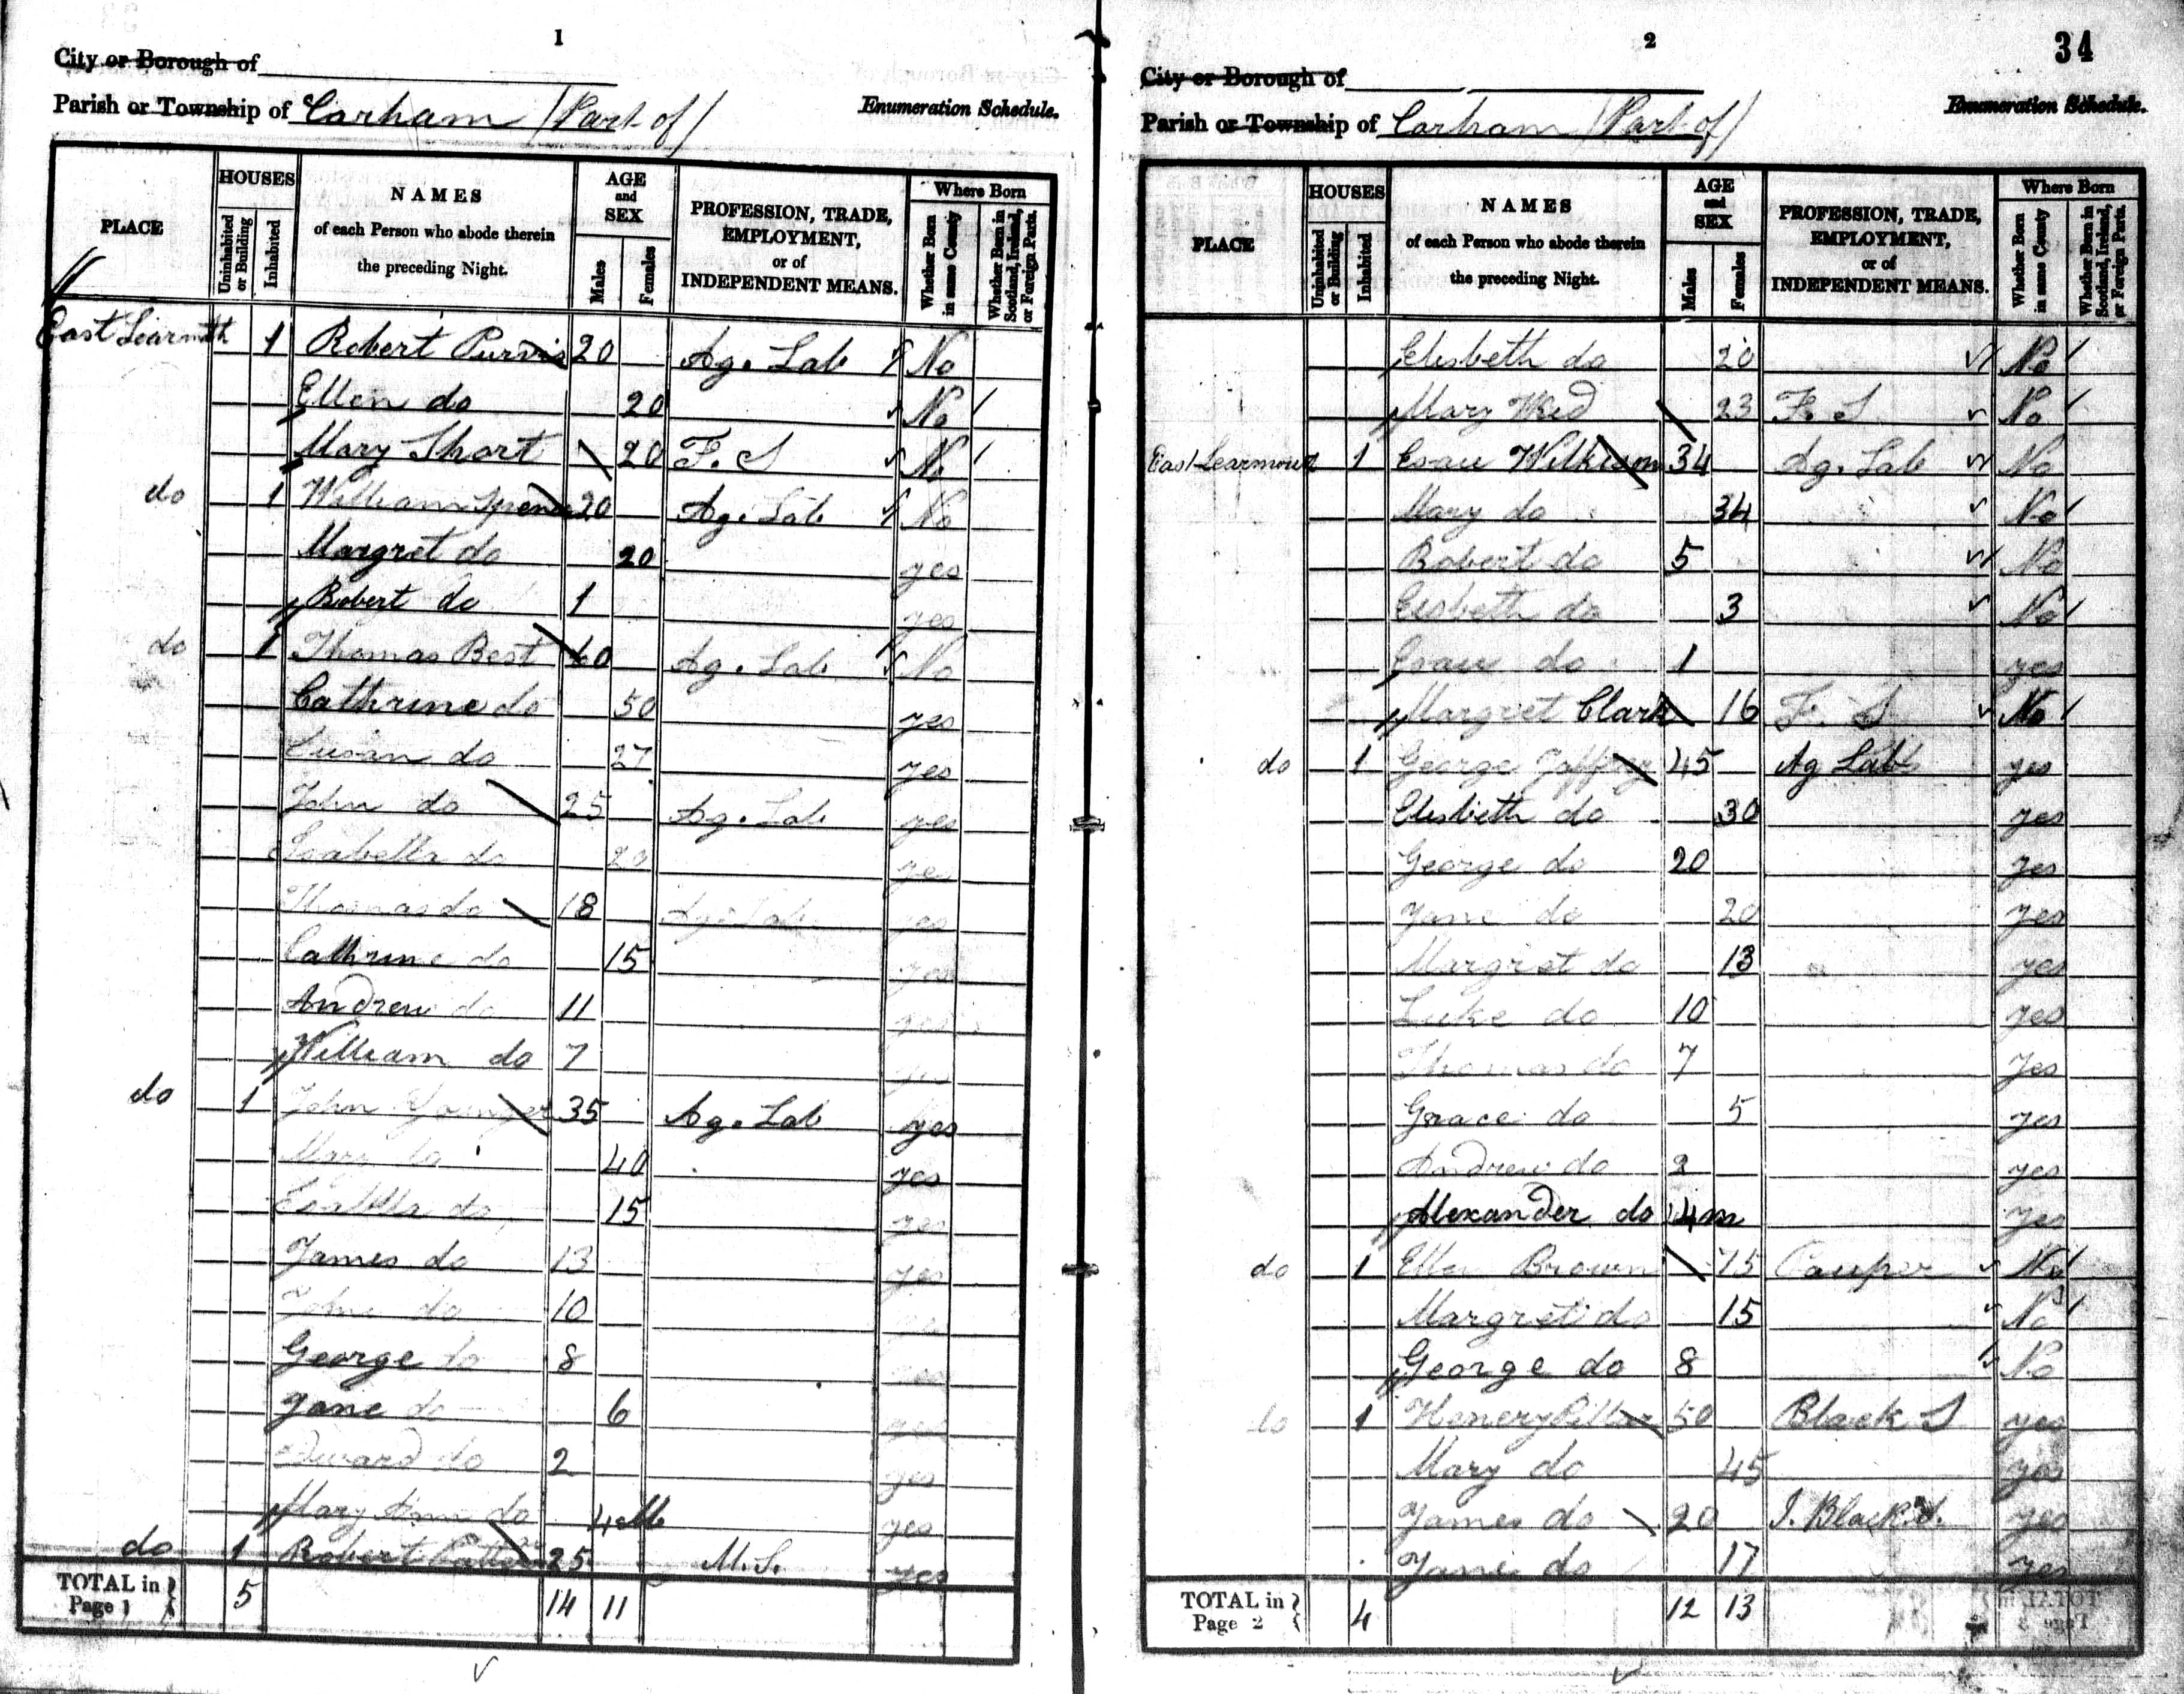 1
City or Borough of
Parish or Township of Carham (Part of)
Enumeration Schedule.
PLACE
HOUSES
Uninhabited or Building
Inhabited
NAMES of each Person who abode therein the preceding Night.
AGE and SEX
Males
Females
PROFESSION, TRADE, EMPLOYMENT, or of INDEPENDENT MEANS.
Where Born
Whether Born in same County
Whether Born in Scotland, Ireland, or Foreign Parts.
East Learmth 1 Robert Purvis 20 Ag. Lab No
Ellen do 20 No
Mary Short 20 F. S No
do 1 William 20 Ag. Lab No
Margret do 20 yes
Robert do 1 yes
do 1 Thomas Best 60 Ag. Lab No
Cathrine do 50 yes
Susan do 27 yes
John do 25 Ag. Lab yes
Isabella do 20 yes
Thomas do 18 Ag. Lab yes
Cathrine do 15 yes
Andrew do 11 yes
William do 7 yes
do 1 John Younger 35 Ag. Lab yes
Mary do 40 yes
Isabella do 15 yes
James do 13 yes
John do 10 yes
George do 8 yes
Jane do 6 yes
Edward do 2 yes
Mary Ann do 4 M yes
do 1 Robert 25 M.S. yes
TOTAL in Page 1 5 14 11
2
34
City or Borough of
Parish or Township of Carham (Part of)
Enumeration Schedule.
PLACE
HOUSES
Uninhabited or Building
Inhabited
NAMES of each Person who abode therein the preceding Night.
AGE and SEX
Males
Females
PROFESSION, TRADE, EMPLOYMENT, or of INDEPENDENT MEANS.
Where Born
Whether Born in same County
Whether Born in Scotland, Ireland, or Foreign Parts.
Elisbeth do 20 No
Mary 23 F. S No
East Learmouth 1 Esau Wilkison 34 Ag. Lab No
Mary do 34 No
Robert do 5 No
Elisbeth do 3 No
Esau do 1 yes
Margret Clark 16 F. S No
do 1 George Jaffrey 45 Ag Lab yes
Elisbeth do 30 yes
George do 20 yes
Jane do 20 yes
Margret do 13 yes
Luke do 10 yes
Thomas do 7 yes
Grace do 5 yes
Andrew do 2 yes
Alexander do 4m yes
do 1 Ellen Brown 75 Pauper No
Margret do 15 No
George do 8 No
do 1 Henery 50 Black S yes
Mary do 45 yes
James do 20 J. Black S. yes
Jane do 17 yes
TOTAL in Page 2 4 12 13